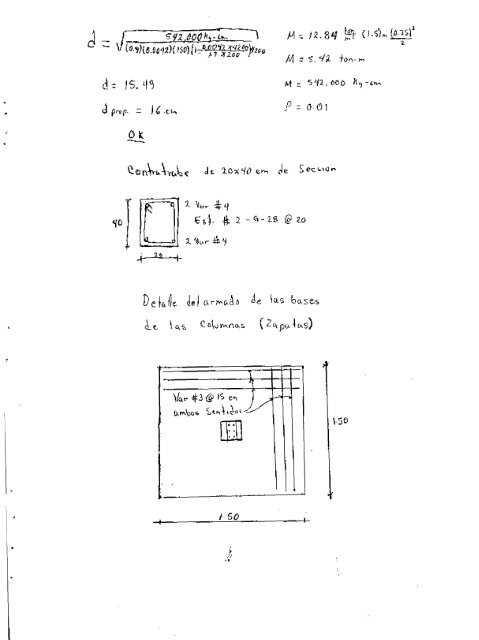 d = √ 542,000 Kg-cm
M = 12.84 ton/m² (1.5)m (0.75)²/2
M = 5.42 ton-m
d = 15.49
M = 542,000 Kg-cm
d prop. = 16 cm
ρ = 0.01
OK
Contratrabe de 20x40 cm de Seccion
2 Var #4
40
Est. # 2 - G-28 @ 20
2 Var #4
20
Detalle del armado de las bases
de las Columnas (Zapatas)
Var #3 @ 15 en
ambos Sentidos
1.50
1.50